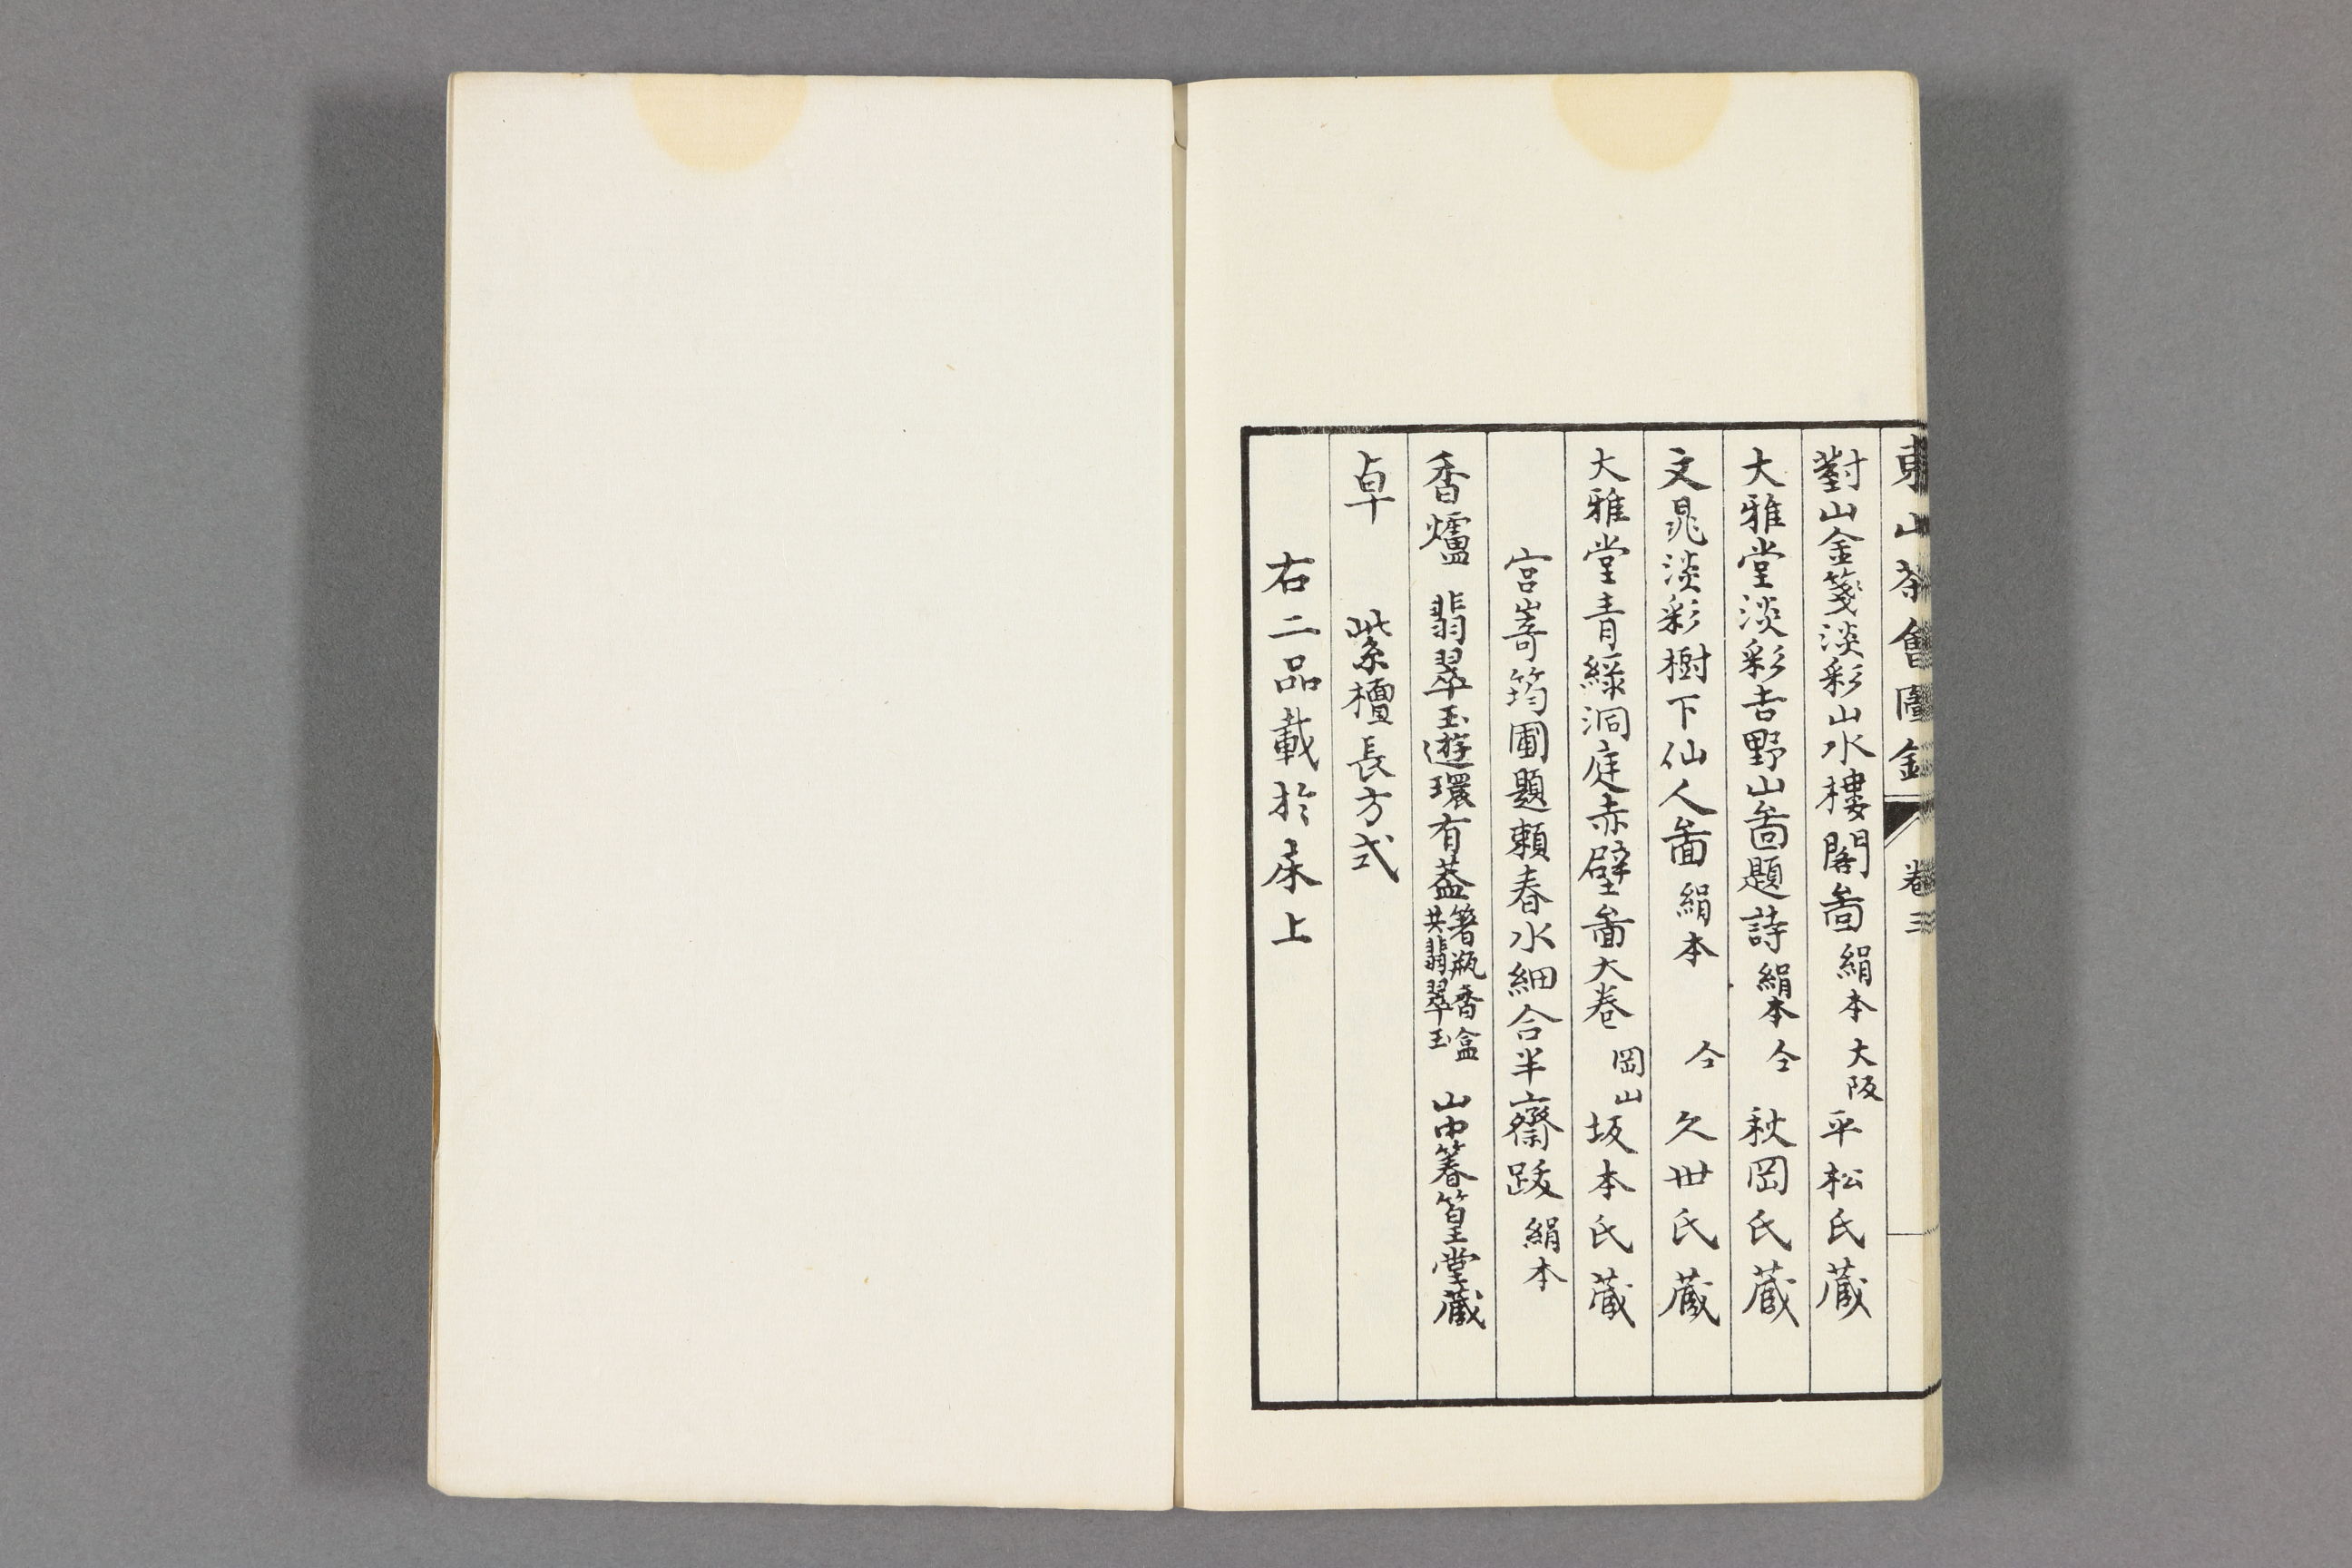 東山茶會圖錄 卷三
對山金箋淡彩山水樓閣啚 絹本 大阪 平松氏蔵
大雅堂淡彩吉野山啚題詩 絹本 仝 秋岡氏蔵
文晁淡彩樹下仙人啚 絹本 仝 久世氏蔵
大雅堂青緑洞庭赤壁啚大巻 岡山 坂本氏蔵
宮嵜筠圃題頼春水細合半齋跋 絹本
香爐 翡翠玉遊環有蓋 箸瓶香盒共翡翠玉 山中篸篁堂蔵
卓 紫檀長方式
右二品載於床上